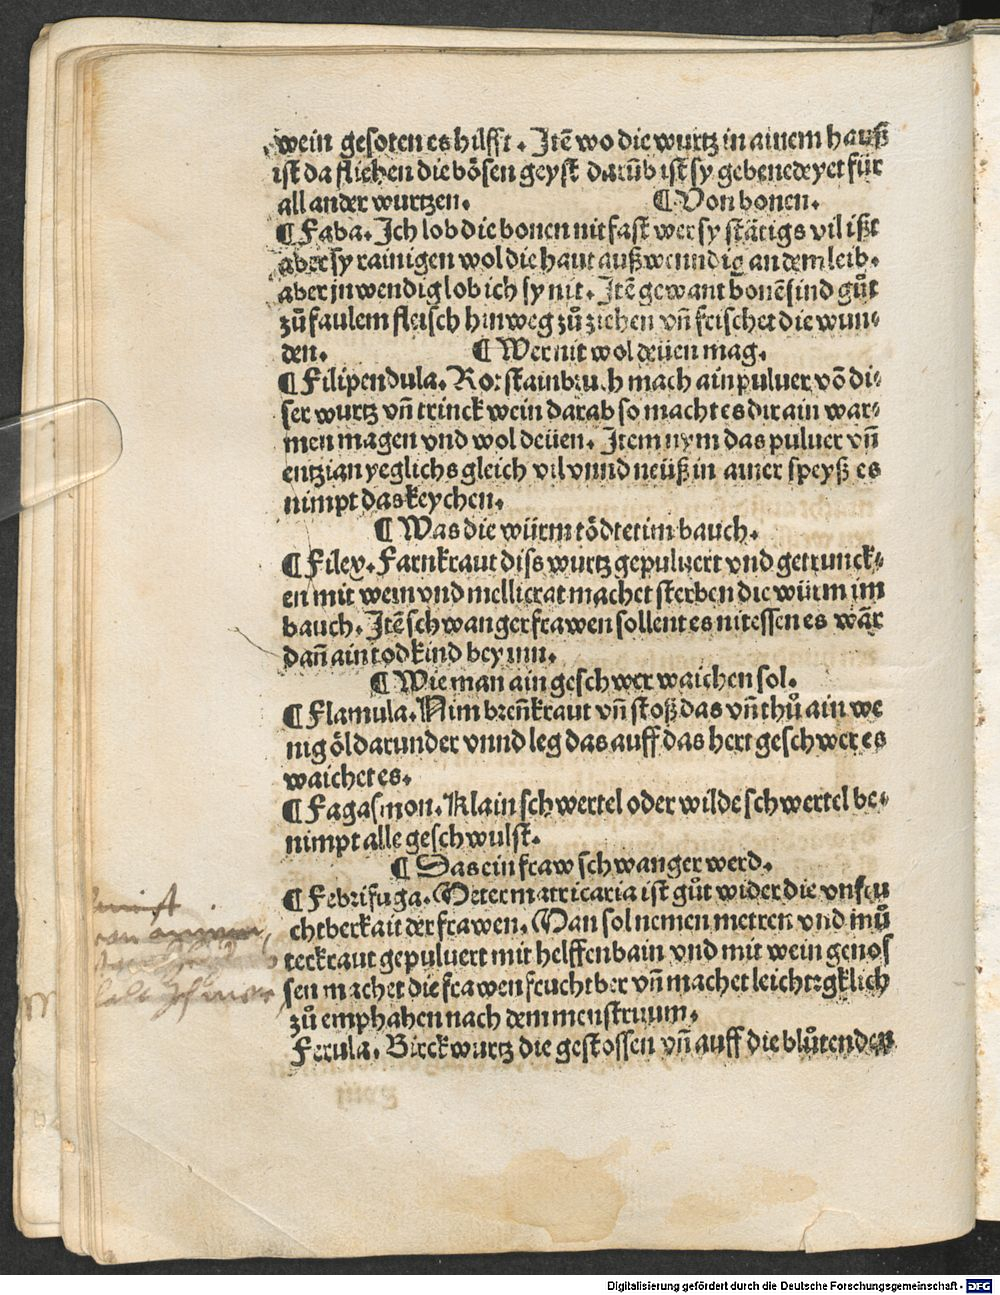 wein gesoten es hilfft. Itē wo die wurtz in ainem hauß
ist da fliehen die bösen geyst darūb ist sy gebenedeyet für
all ander wurtzen. ¶ Von bonen.
¶ Faba. Ich lob die bonen nit fast wer sy stätigs vil ißt
aber sy rainigen wol die haut außwenndig an dem leib.
aber jnwendig lob ich sy nit. Itē gewant bonē sind gůt
zů faulem fleisch hinweg zů ziehen vñ frischet die wun⸗
den. ¶ Wer nit wol deüen mag.
¶ Filipendula. Rot stainbruch mach ain puluer vō di⸗
ser wurtz vñ trinck wein darab so macht es dir ain war⸗
men magen vnd wol deüen. Item nym das puluer vñ
entzian yeglichs gleich vil vnnd neüß in ainer speyß es
nimpt das keychen.
¶ Was die würm tödtet im bauch.
¶ Filex. Farnkraut diss wurtz gepuluert vnd getrunck⸗
en mit wein vnd mellicrat machet sterben die würm im
bauch. Itē schwanger frawen sollent es nit essen es wār
dañ ain tod kind bey inn.
¶ Wie man ain geschwer waichen sol.
¶ Flamula. Nim breñkraut vñ stoß das vñ thů ain we
nig öl darunder vnnd leg das auff das hert geschwer es
waichet es.
¶ Fagasmon. Klain schwertel oder wilde schwertel be⸗
nimpt alle geschwulst.
¶ Das ein fraw schwanger werd.
¶ Febrifuga. Meter matricaria ist gůt wider die vnfru
chtberkait der frawen. Man sol nemen metren vnd mů
terkraut gepuluert mit helffenbain vnd mit wein genos
sen machet die frawen fruchtber vñ machet leichtigklich
zů emphahen nach dem menstruum.
Ferula. Birckwurtz die gestossen vñ auff die blůtenden
Digitalisierung gefördert durch die Deutsche Forschungsgemeinschaft - DFG